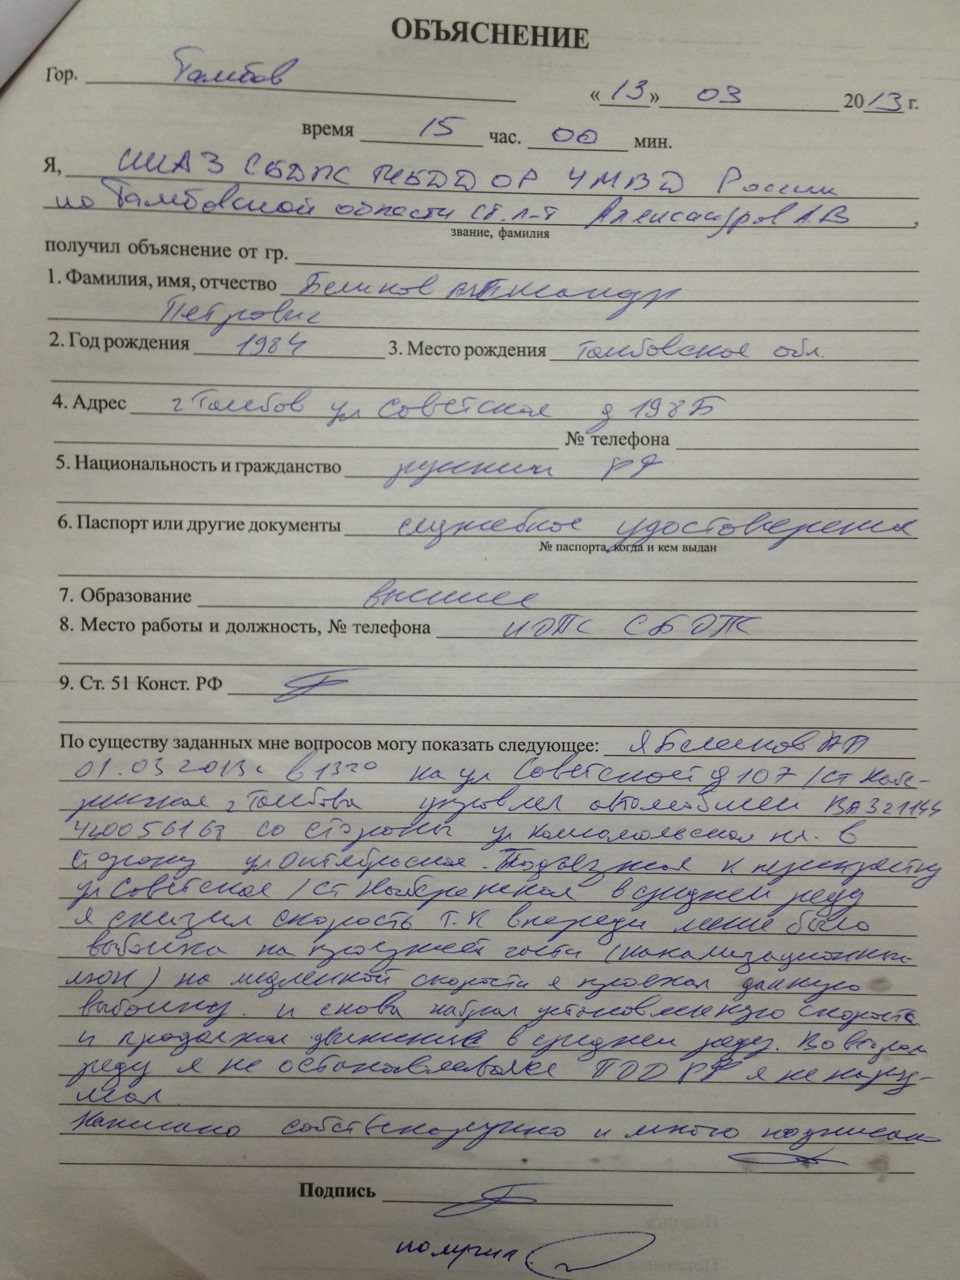 ОБЪЯСНЕНИЕ
Гор. Тамбов
«13» 03 2013 г.
время 15 час. 00 мин.
Я, СБДПС ГИБДД ОР УМВД России
по Тамбовской области ст. л-т Александров А В,
звание, фамилия
получил объяснение от гр.
1. Фамилия, имя, отчество Беликов
Петрович
2. Год рождения 1984 3. Место рождения Тамбовская обл.
4. Адрес г Тамбов ул Советская д 198Б
№ телефона
5. Национальность и гражданство русский РФ
6. Паспорт или другие документы служебное удостоверение
№ паспорта, когда и кем выдан
7. Образование высшее
8. Место работы и должность, № телефона ИДПС СБДПС
9. Ст. 51 Конст. РФ
По существу заданных мне вопросов могу показать следующее: Я Беликов АП
01.03 2013г в 1320 на ул Советской д 107 / ст Набе-
режная г Тамбова управлял автомобилем ВАЗ 21144
со стороны ул Комсомольская пл. в
сторону ул Октябрьская. Подъезжая к перекрестку
ул Советская / Ст Набережная в среднем ряду
я снизил скорость т.к впереди меня была
выбоина на проезжей части (канализационный
люк) на медленной скорости я проехал данную
выбоину и снова набрал установленную скорость
и продолжил движение в среднем ряду. Во втором
ряду я не останавливался ПДД РФ я не нару-
шал
Написано собственноручно и мною подписано
Подпись
получил